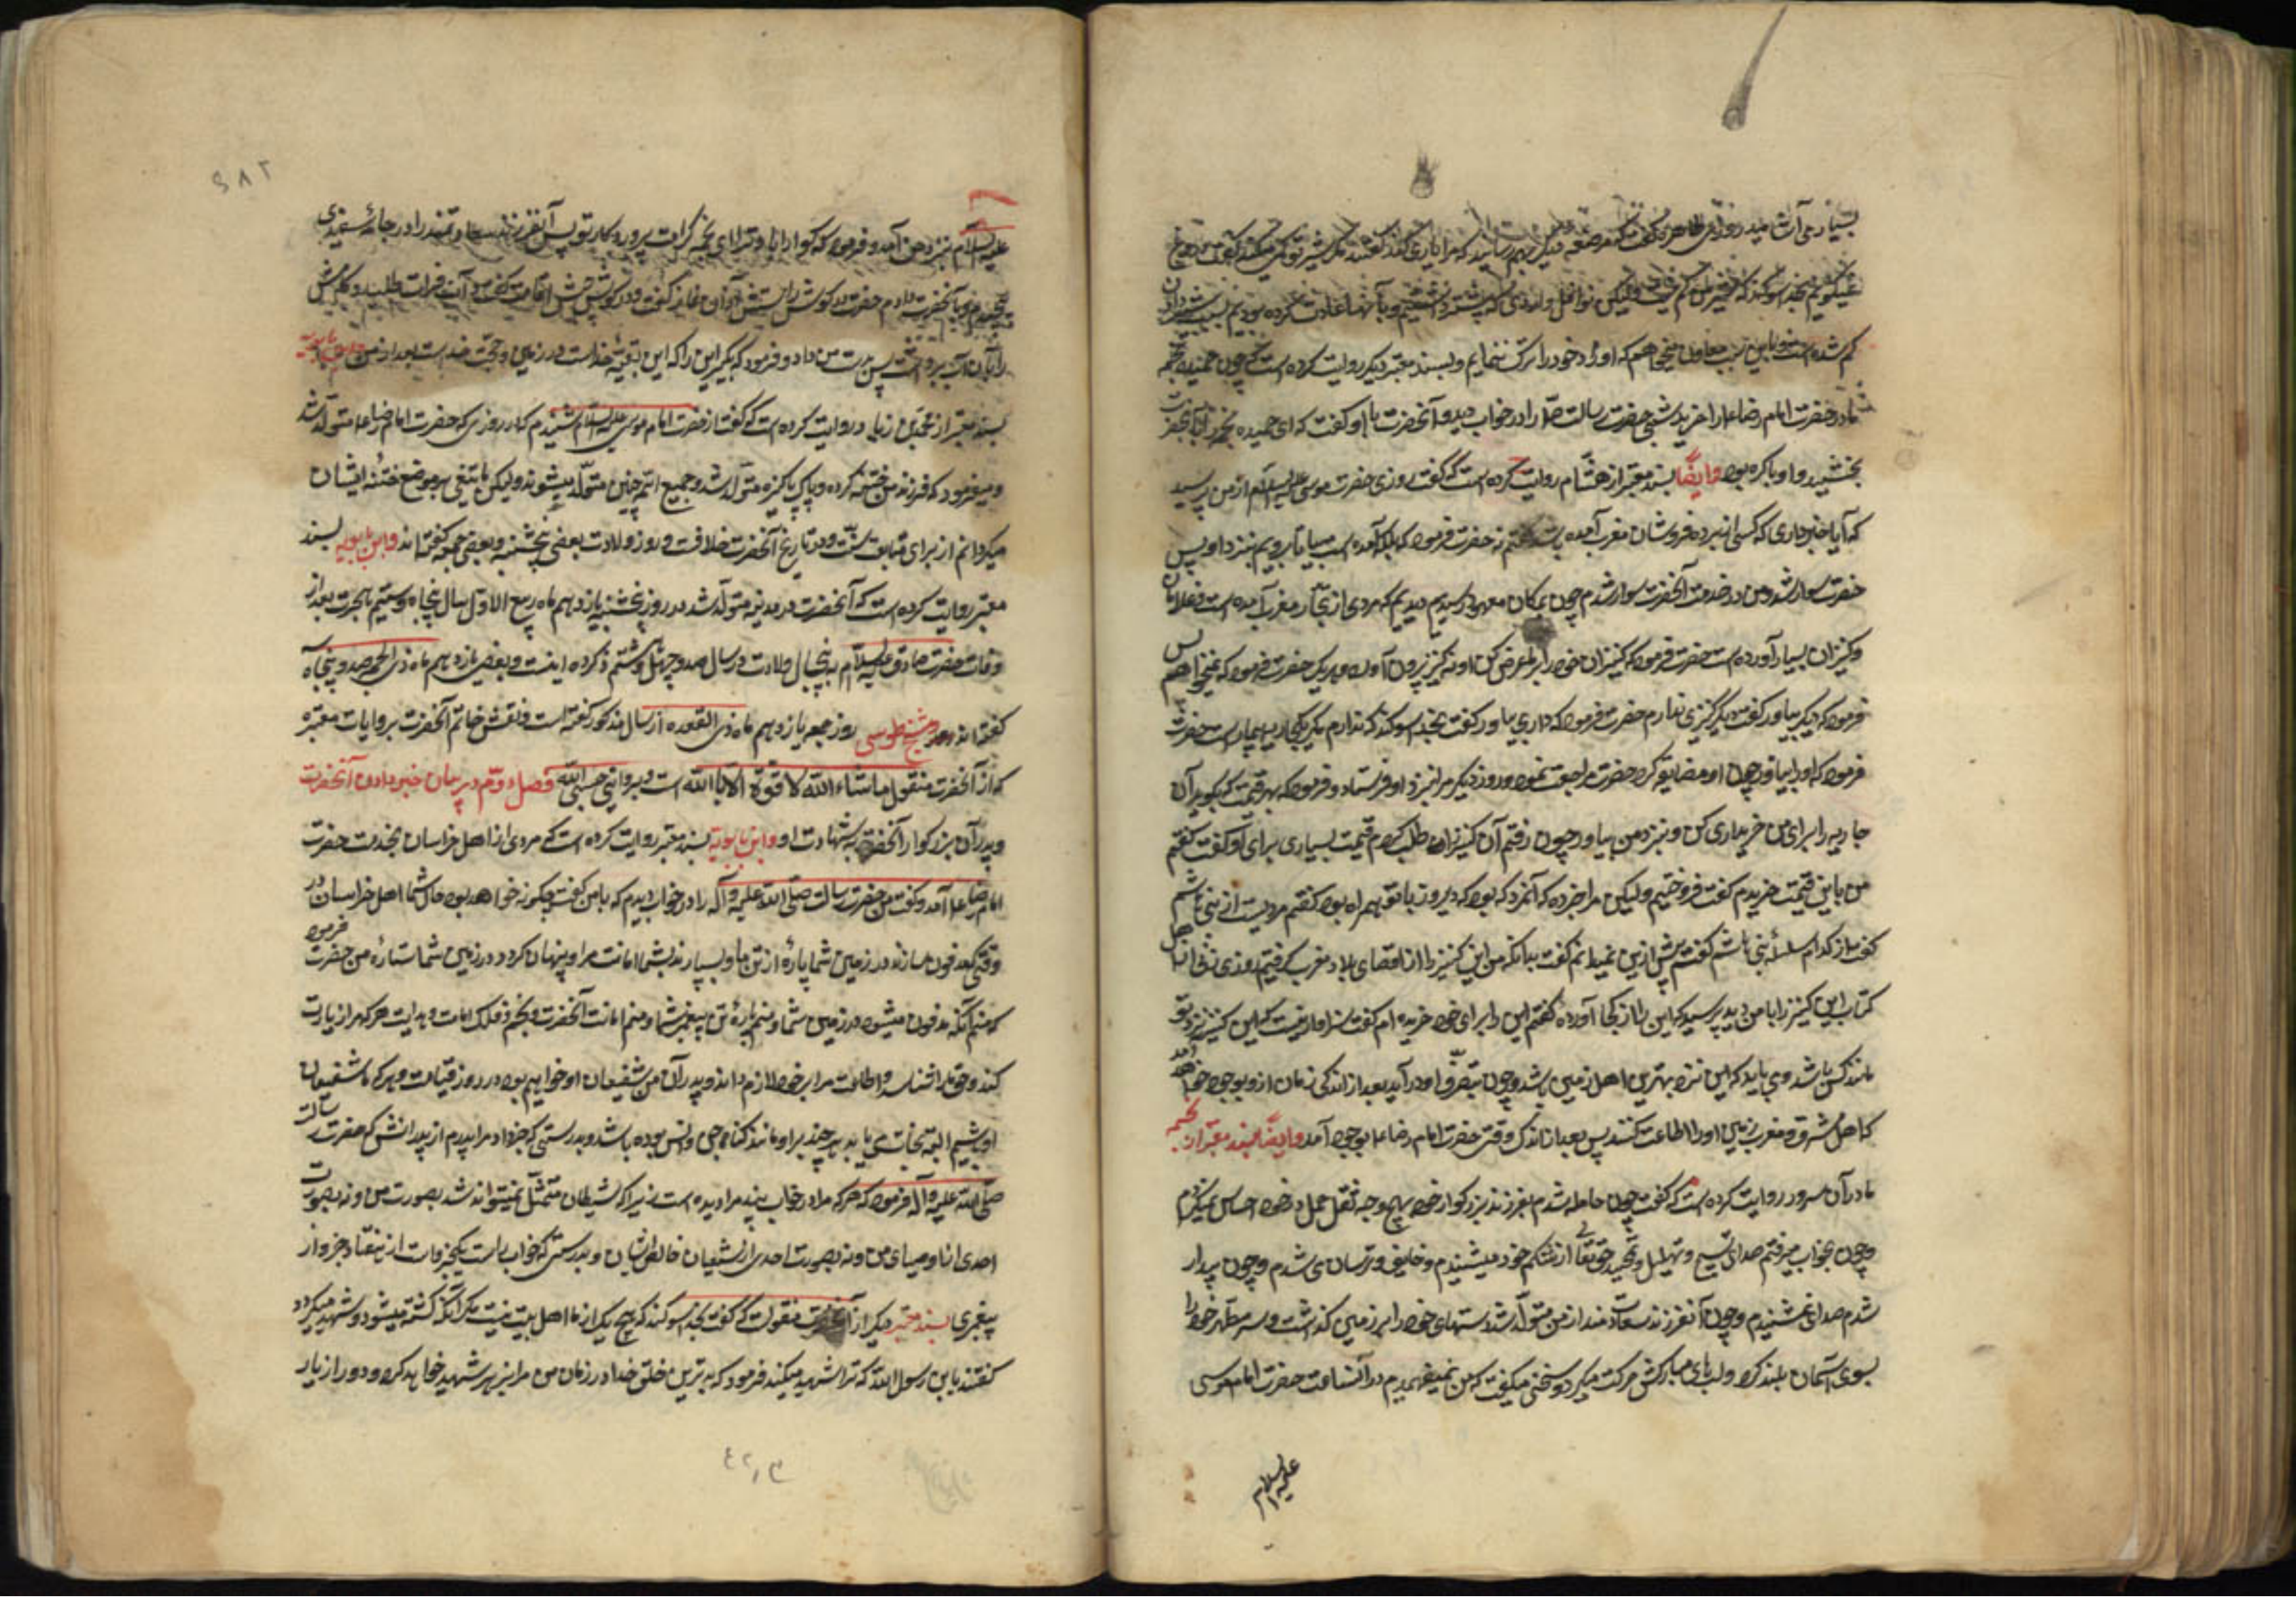 بسیار می آشامید روزی طاهره گفت که مرضعه دیگر بهم رسانید که مرا یاری کند گفتند مگر شیر تو کمی میکند گفت دروغ
نمیگویم بخدا سوگند که شیر من کم نیست ولیکن نوافل و اورادی که پیشتر داشتیم و بآنها عادت کرده بودیم بسبب شیر دادن
کم شده است و باین سبب معاون میخواهم که اوراد خود را ترک ننمایم و بسند معتبر دیگر روایت کرده است که چون حمیده نجمه
مادر حضرت امام رضا ع را خرید شبی حضرت رسالت ص را در خواب دید و آنحضرت با او گفت که ای حمیده نجمه را
بخشید و او باکره بود وایضا بسند معتبر از هشام روایت کرده است که گفت روزی حضرت موسی علیه السلام از من پرسید
که آیا خبر داری که کسی از برده فروشان مغرب آمده باشد گفتم نه حضرت فرمود که بلکه آمده است بیا تا برویم بنزد او پس
حضرت سوار شد و من در خدمت آنحضرت سوار شدم چون بمکان معهود رسیدیم دیدیم که مردی از تجار مغرب آمده است و غلامان
و کنیزان بسیار آورده است حضرت فرمود که کنیزان خود را بر ما عرض کن او نه کنیز بیرون آورد و هر یک حضرت فرمود که نمیخواهم پس
فرمود که دیگر بیاور گفت دیگر کنیزی ندارم حضرت فرمود که داری بیاور گفت بخدا سوگند که ندارم مگر یک جاریه بیمار است حضرت
فرمود که او را بیاور چون او مضایقه کرد حضرت مراجعت نمود و روز دیگر مرا بنزد او فرستاد و فرمود که بهر قیمت که بگوید آن
جاریه را برای من خریداری کن و بنزد من بیاور چون رفتم آن کنیز را طلب کردم قیمت بسیاری برای او گفت گفتم
من باین قیمت خریدم گفت فروختیم ولیکن مرا خبر ده که آنمرد که بود که دیروز با تو همراه بود گفتم مردیست از بنی هاشم
گفت از کدام سلسله بنی هاشم گفتم بیش ازین نمیدانم گفت بدانکه من این کنیز را از اقصای بلاد مغرب گرفتم روزی زنی از اهل
کتاب این کنیز را با من دید پرسید که این را از کجا آورده گفتم این را برای خود خریده ام گفت سزاوار نیست که این کنیز نزد تو
مانند کس باشد و می باید که این نزد بهترین اهل زمین باشد و چون بتصرف او درآید بعد از اندک زمانی از او بوجود خواهد آمد
که اهل مشرق و مغرب زمین او را اطاعت کنند پس بعد از اندک وقتی حضرت امام رضا ع بوجود آمد وایضا بسند معتبر از نجمه
مادر آن سرور روایت کرده است که گفت چون حامله شدم بفرزند بزرکوار خود بهیچ وجه ثقل حمل در خود احساس نمیکردم
و چون بخواب میرفتم صدای تسبیح و تهلیل و تمجید حق تعالی از شکم خود میشنیدم و خایف و ترسان می شدم و چون بیدار
شدم صدا نمی شنیدم و چون آنفرزند سعادتمند از من متولد شد دستهای خود را بر زمین گذاشت و سر مطهر خود را
بسوی آسمان بلند کرد و لبهای مبارکش حرکت میکرد و سخنی میگفت که من نمیفهمیدم در آنساعت حضرت امام موسی
علیه السلام
۲۸۶
علیه السلام بنزد من آمد و فرمود که گوارا باد ترا ای نجمه کرامت پروردکار تو پس آنفرزند سعادتمند را در جامه سفیدی
پیچیدم و بآنحضرت دادم حضرت در گوش راستش اذان نماز گفت و در گوش چپش اقامت گفت و آب فرات طلبید و کامش
را بآن آب برداشت پس بدست من داد و فرمود که بگیر این را که این بقیه خداست در زمین و حجت خداست بعد از من وابن بابویه
بسند معتبر از محمد بن زیاد روایت کرده است که گفت از حضرت امام موسی علیه السلام شنیدم که در روزی که حضرت امام رضا ع متولد شد
و میفرمود که فرزند من ختنه کرده و پاک و پاکیزه متولد شد و جمیع ائمه چنین متولد میشوند ولیکن ما تیغی بر موضع ختنه ایشان
میگردانم از برای متابعت سنت و در تاریخ آنحضرت خلافست و روز ولادت بعضی پنجشنبه و بعضی جمعه گفته اند وابن بابویه بسند
معتبر روایت کرده است که آنحضرت در مدینه متولد شد در روز پنجشنبه یازدهم ماه ربیع الاول سال پنجاه و سیم بهجرت بعد از
وفات حضرت صادق علیه السلام به پنج سال ولادت در سال صد و چهل و هشتم ذکر کرده اینست و بعضی یازدهم ماه ذی الحجه صد و پنجاه
گفته اند شیخ طوسی روز جمعه یازدهم ماه ذی القعده از سال مذکور گفته است و نقش خاتم آنحضرت بروایات معتبره
که از آنحضرت منقول ماشاء الله لا قوة الا بالله است و بروایتی حسبی الله فصل دوم در بیان خبر دادن آنحضرت
و پدران بزرکوار آنحضرت بشهادت او وابن بابویه بسند معتبر روایت کرده است که مردی از اهل خراسان بخدمت حضرت
امام رضا ع آمد و گفت من حضرت رسالت صلی الله علیه و آله را در خواب دیدم که با من گفت چگونه خواهد بود حال شما اهل خراسان در
وقتی که مدفون سازند در زمین شما پاره از تن ما و بسپارند بشما امانت مرا و پنهان کردد در زمین شما ستاره من حضرت فرمود
که منم آنکه مدفون میشود در زمین شما و منم پاره تن پیغمبر شما و منم امانت آنحضرت و نجم فلک امامت و هدایت هر که مرا زیارت
کند و حق مرا شناسد و اطاعت مرا بر خود لازم داند من و پدران من شفیعان او خواهیم بود در روز قیامت و هر که ما شفیعان
او باشیم البته نجات می یابد هر چند بر او مانند کناه جن و انس بوده باشد و بدرستی که خبر داد مرا پدرم از پدرانش که حضرت رسالت
صلی الله علیه و آله فرمود که هر که مرا در خواب بیند مرا دیده است زیرا که شیطان متمثل نمیتواند شد بصورت من و نه بصورت
احدی از اوصیای من و نه بصورت احدی از شیعیان خالص ایشان و بدرستی که خواب راست یک جزو است از هفتاد جزو از
پیغمبری بسند معتبر دیگر از آنحضرت منقولست که گفت بخدا سوگند که هیچ یک از ما اهل بیت نیست مگر آنکه کشته میشود و شهید میگردد
گفتند یابن رسول الله که ترا شهید میکند فرمود که بدترین خلق خدا در زمان من مرا بزهر شهید خواهد کرد و دور از یار